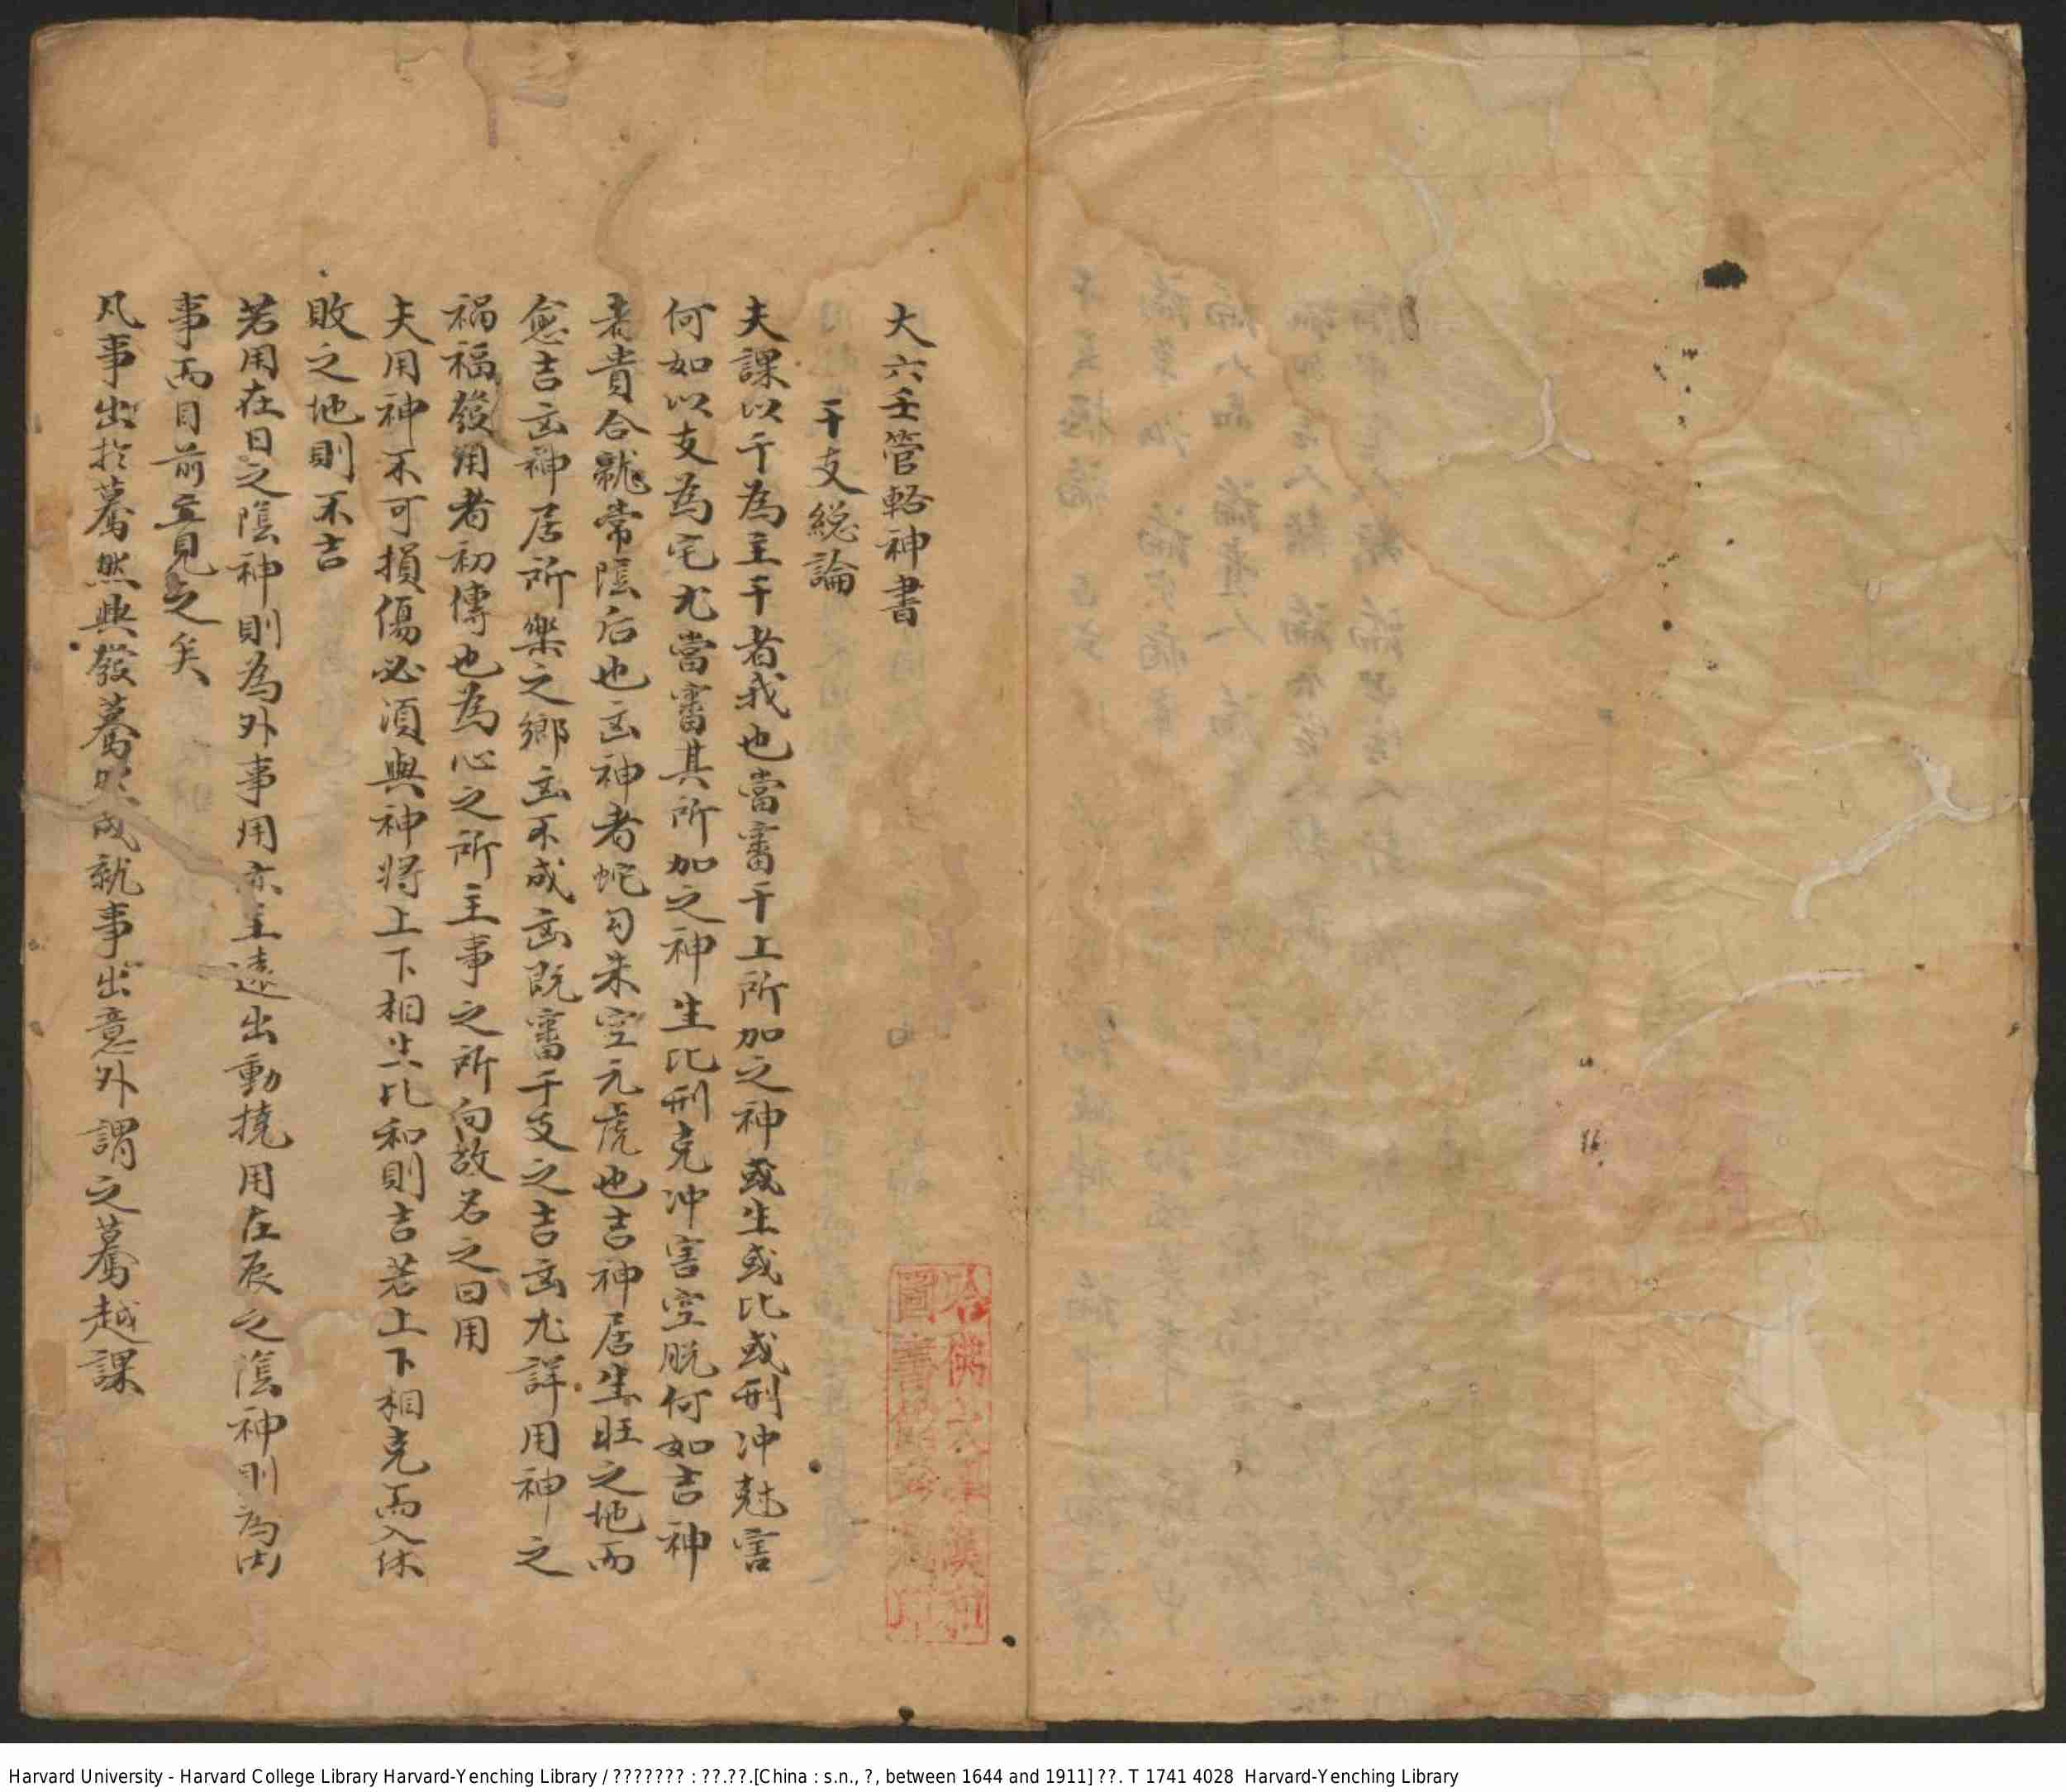 大六壬管輅神書
干支総論
夫課以干為主干者我也當審干上所加之神或生或比或刑冲尅害
何如以支為宅尤當審其所加之神生比刑克冲害空脱何如吉神
者貴合龍常陰后也凶神者蛇勾朱空元虎也吉神居生旺之地而
愈吉凶神居所樂之鄉凶不成凶既審干支之吉凶尤詳用神之
禍福發用者初傳也為心之所主事之所向故名之曰用
夫用神不可損傷必須與神将上下相生比和則吉若上下相克而入休
敗之地則不吉
若用在日之陰神則為外事用亦主遠出動撓用在辰之陰神則為内
事而目前立見之矣
凡事出於驀然與發驀然成就事出意外謂之驀越課
哈佛大學漢和
圖書館珍藏印
Harvard University - Harvard College Library Harvard-Yenching Library / ??????? : ??.??.[China : s.n., ?, between 1644 and 1911] ??. T 1741 4028 Harvard-Yenching Library